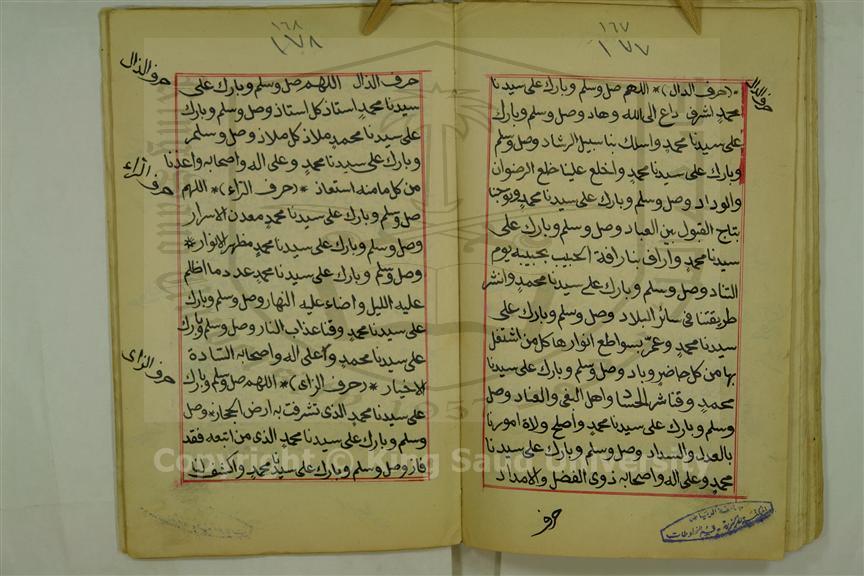 ١٦٧
١٧٧
حرف الدال
*(حرف الدال)* اللهم صل وسلم وبارك على سيدنا
محمد اشرف داع الى الله وهاد وصل وسلم وبارك
على سيدنا محمد واسلك بنا سبيل الرشاد وصل وسلم
وبارك على سيدنا محمد واخلع علينا خلع الرضوان
والوداد وصل وسلم وبارك على سيدنا محمد وتوجنا
بتاج القبول بين العباد وصل وسلم وبارك على
سيدنا محمد واراف بنا رافة الحبيب بحبيبه يوم
التناد وصل وسلم وبارك على سيدنا محمد وانشر
طريقتنا فى سائر البلاد وصل وسلم وبارك على
سيدنا محمد وعمر بسواطع انوارها كل من اشتغل
بها من كل حاضر وباد وصل وسلم وبارك على سيدنا
محمد وقنا شر الحساد واهل البغى والعناد وصل
وسلم وبارك على سيدنا محمد واصلح ولاة امورنا
بالعدل والسداد وصل وسلم وبارك على سيدنا
محمد وعلى اله واصحابه ذوى الفضل والامداد
حرف
١٦٨
١٧٨
حرف الذال
حرف الذال اللهم صل وسلم وبارك على
سيدنا محمد استاذ كل استاذ وصل وسلم وبارك
على سيدنا محمد ملاذ كل ملاذ وصل وسلم
وبارك على سيدنا محمد وعلى اله واصحابه واعذنا
حرف الراء
من كل ما منه استعاذ *(حرف الراء)* اللهم
صل وسلم وبارك على سيدنا محمد معدن الاسرار
وصل وسلم وبارك على سيدنا محمد مظهر الانوار *
وصل وسلم وبارك على سيدنا محمد عدد ما اظلم
عليه الليل واضاء عليه النهار وصل وسلم وبارك
على سيدنا محمد وقنا عذاب النار وصل وسلم وبارك
على سيدنا محمد وعلى اله واصحابه السادة
حرف الزاى
الاخيار *(حرف الزاى)* اللهم صل وسلم وبارك
على سيدنا محمد الذى تشرفت به ارض الحجاز * وصل
وسلم وبارك على سيدنا محمد الذى من اتبعه فقد
فاز وصل وسلم وبارك على سيدنا محمد واكشف لنا
Copyright © King Saud University
1957